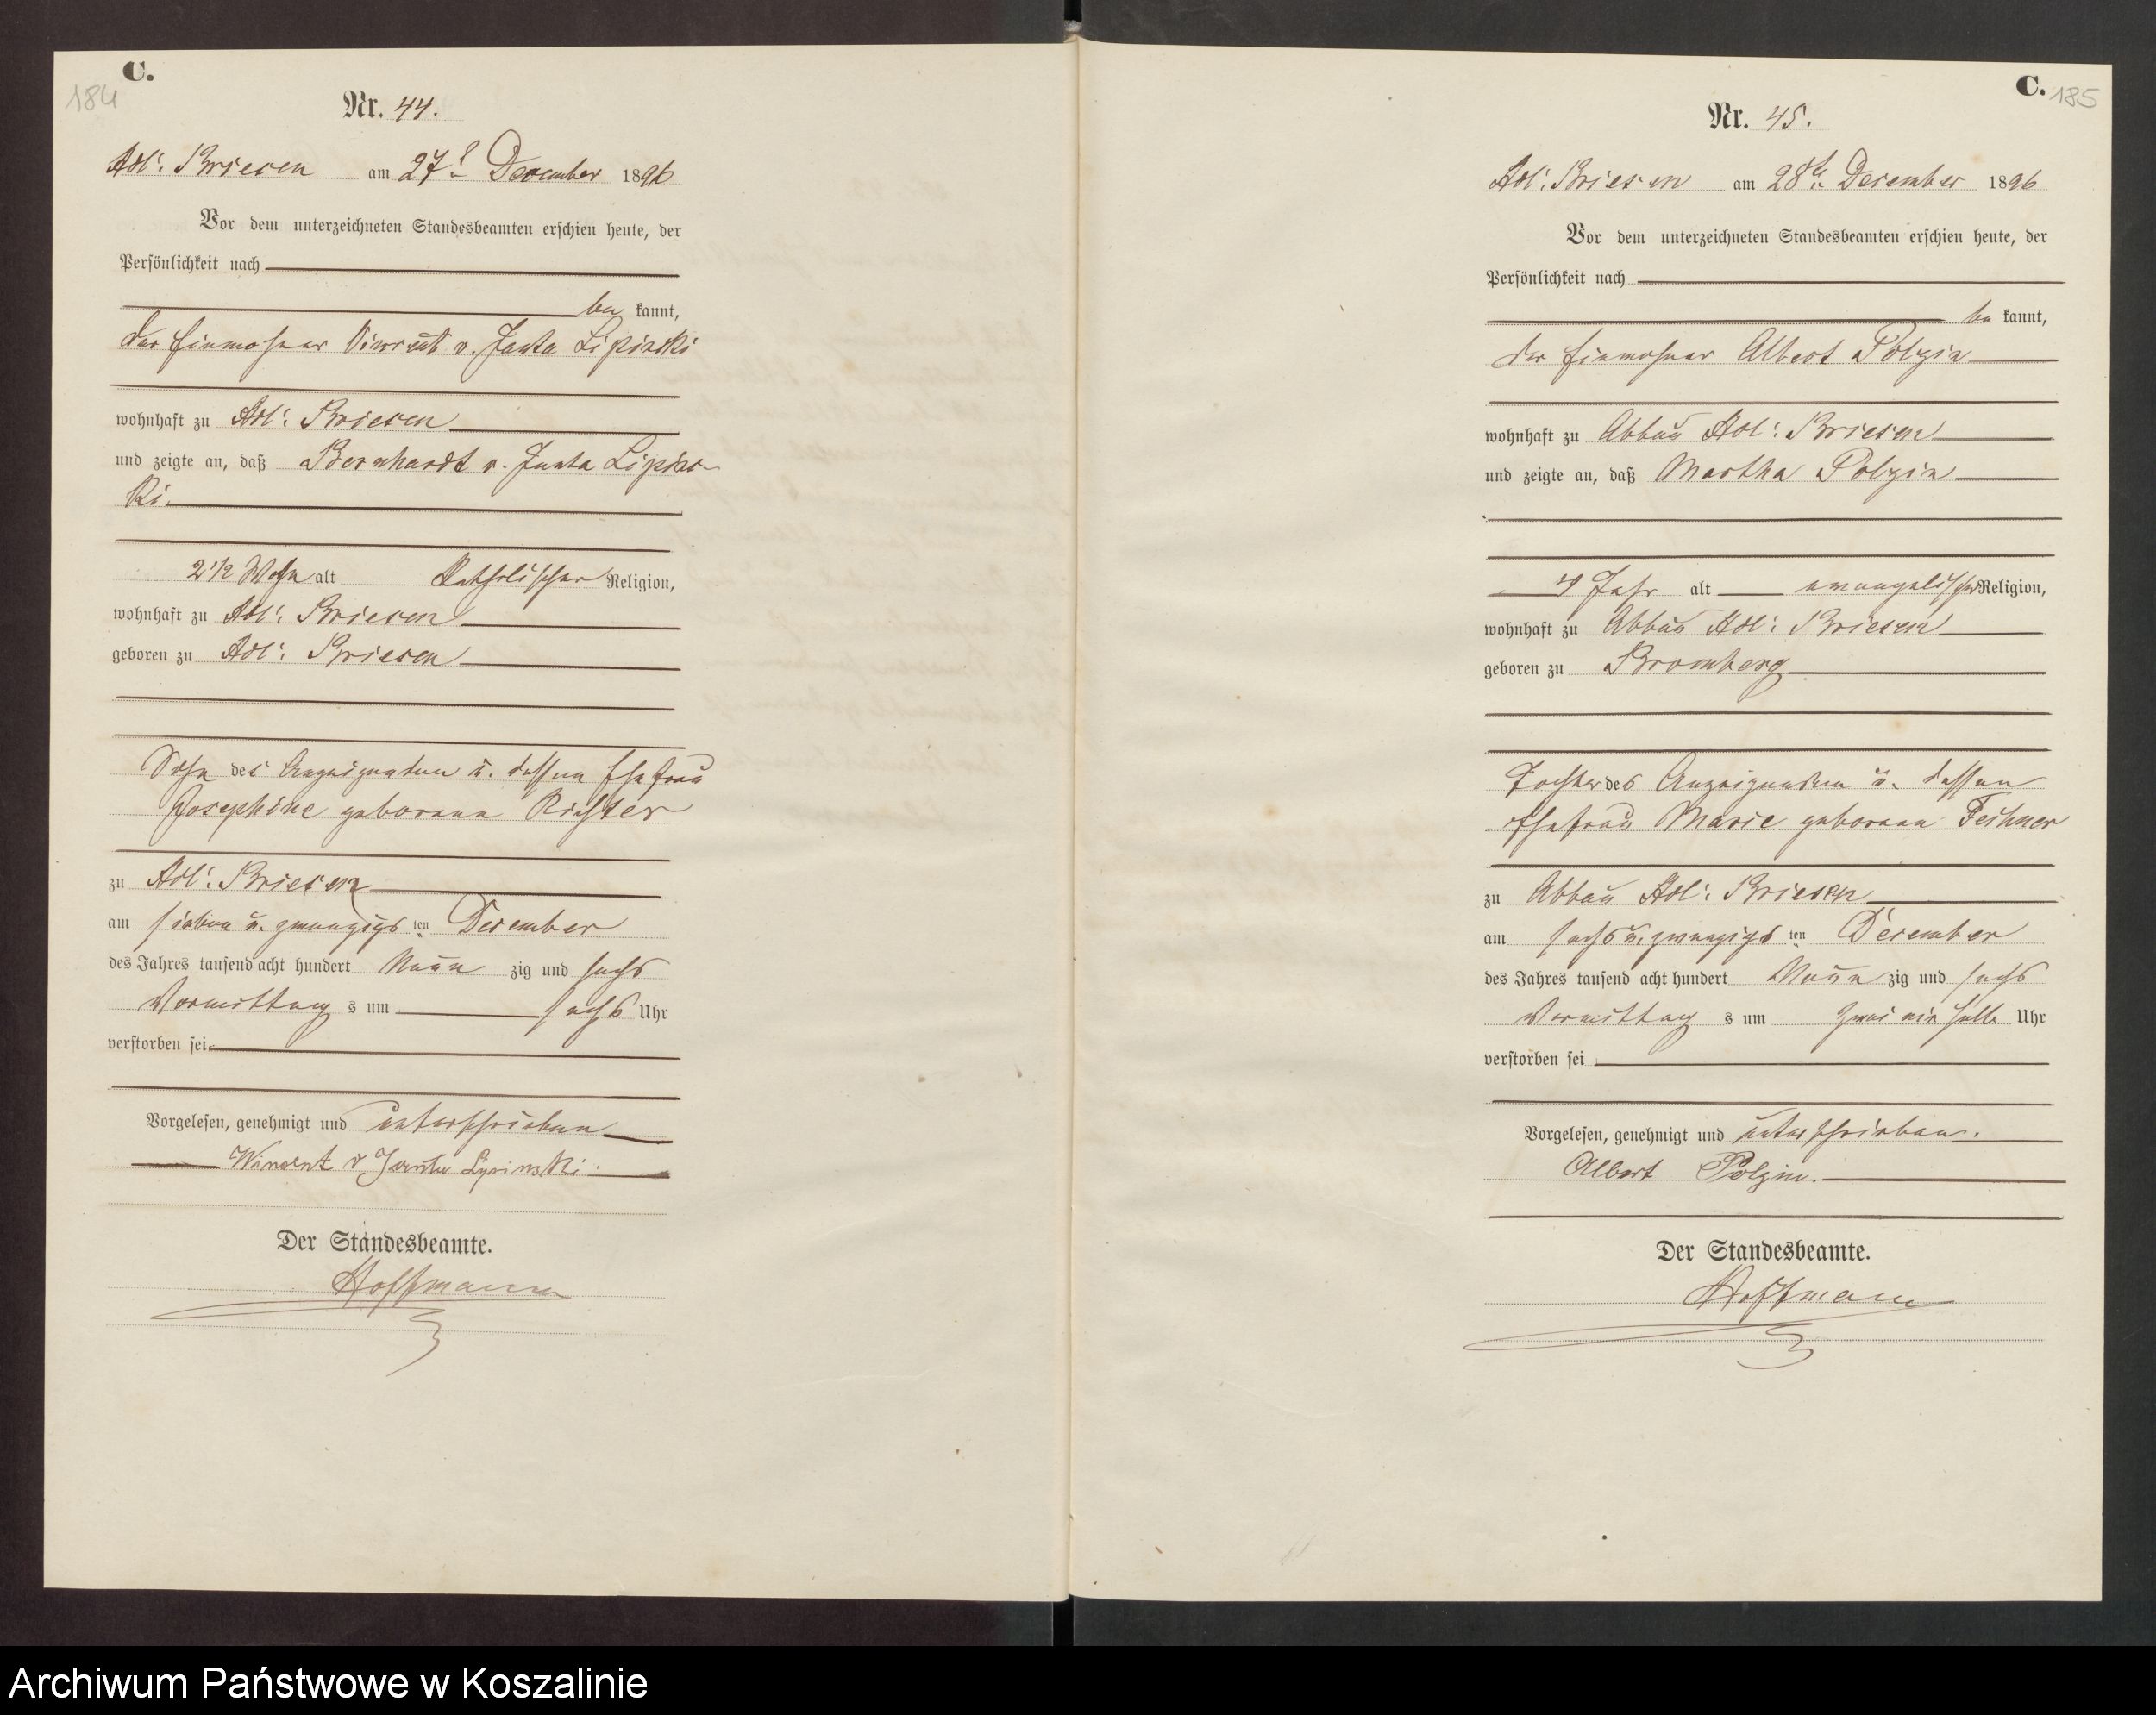 C.
184
Nr. 44.
Adl: Briesen am 27t December 1896
Vor dem unterzeichneten Standesbeamten erschien heute, der
Persönlichkeit nach
be kannt,
der Einwohner Vincent v. Janta Lipinski
wohnhaft zu Adl: Briesen
und zeigte an, daß Bernhardt v. Janta Lipins-
ki.
2 1/2 Woche alt Katholischer Religion,
wohnhaft zu Adl: Briesen
geboren zu Adl: Briesen
Sohn des Anzeigenden u. dessen Ehefrau
Josephine geborene Richter
zu Adl: Briesen
am sieben u. zwanzigs ten December
des Jahres tausend acht hundert Neun zig und sechs
Vormittag s um sechs Uhr
verstorben sei
Vorgelesen, genehmigt und unterschrieben
Wincent v Janta Lipinski
Der Standesbeamte.
Hoffmann
C. 185
Nr. 45.
Adl: Briesen am 28t December 1896
Vor dem unterzeichneten Standesbeamten erschien heute, der
Persönlichkeit nach
be kannt,
der Einwohner Albert Polzin
wohnhaft zu Abbau Adl: Briesen
und zeigte an, daß Martha Polzin
Jahr alt evangelischer Religion,
wohnhaft zu Abbau Adl: Briesen
geboren zu Bromberg
Tochter des Anzeigenden u. dessen
Ehefrau Marie geborene Feihner
zu Abbau Adl: Briesen
am sechs u. zwanzigs ten December
des Jahres tausend acht hundert Neun zig und sechs
Vormittag s um zwei ein halb Uhr
verstorben sei
Vorgelesen, genehmigt und unterschrieben.
Albert Polzin.
Der Standesbeamte.
Hoffmann
Archiwum Państwowe w Koszalinie